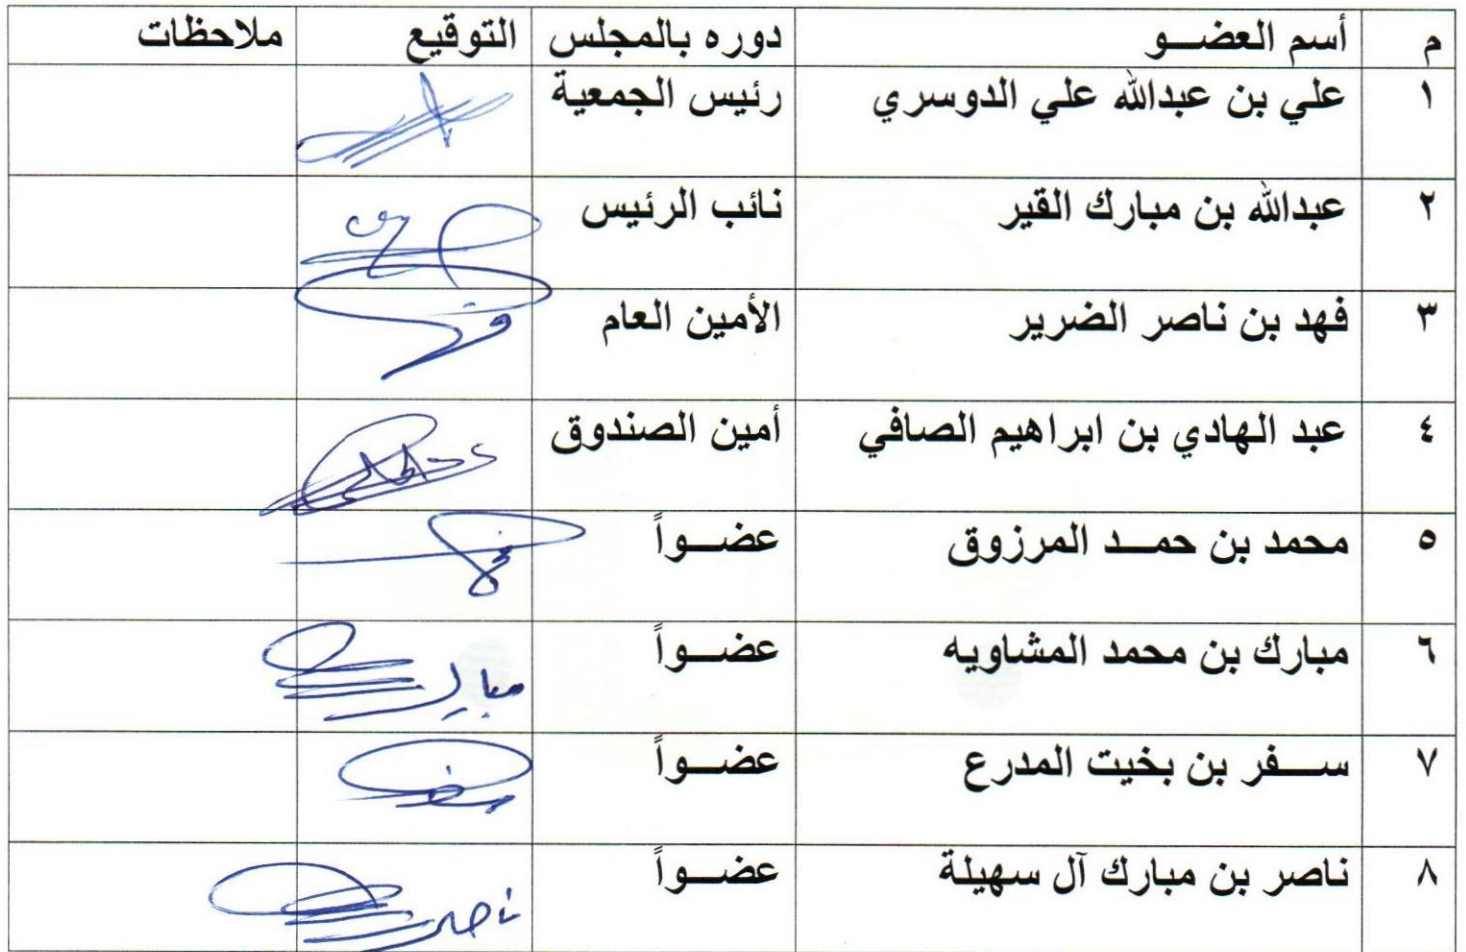 م أسم العضـــو دوره بالمجلس التوقيع ملاحظات
١ علي بن عبدالله علي الدوسري رئيس الجمعية
٢ عبدالله بن مبارك القير نائب الرئيس
٣ فهد بن ناصر الضرير الأمين العام
٤ عبد الهادي بن ابراهيم الصافي أمين الصندوق
٥ محمد بن حمـــد المرزوق عضـــواً
٦ مبارك بن محمد المشاويه عضـــواً مبارك
٧ ســـفر بن بخيت المدرع عضـــواً
٨ ناصر بن مبارك آل سهيلة عضـــواً ناصر